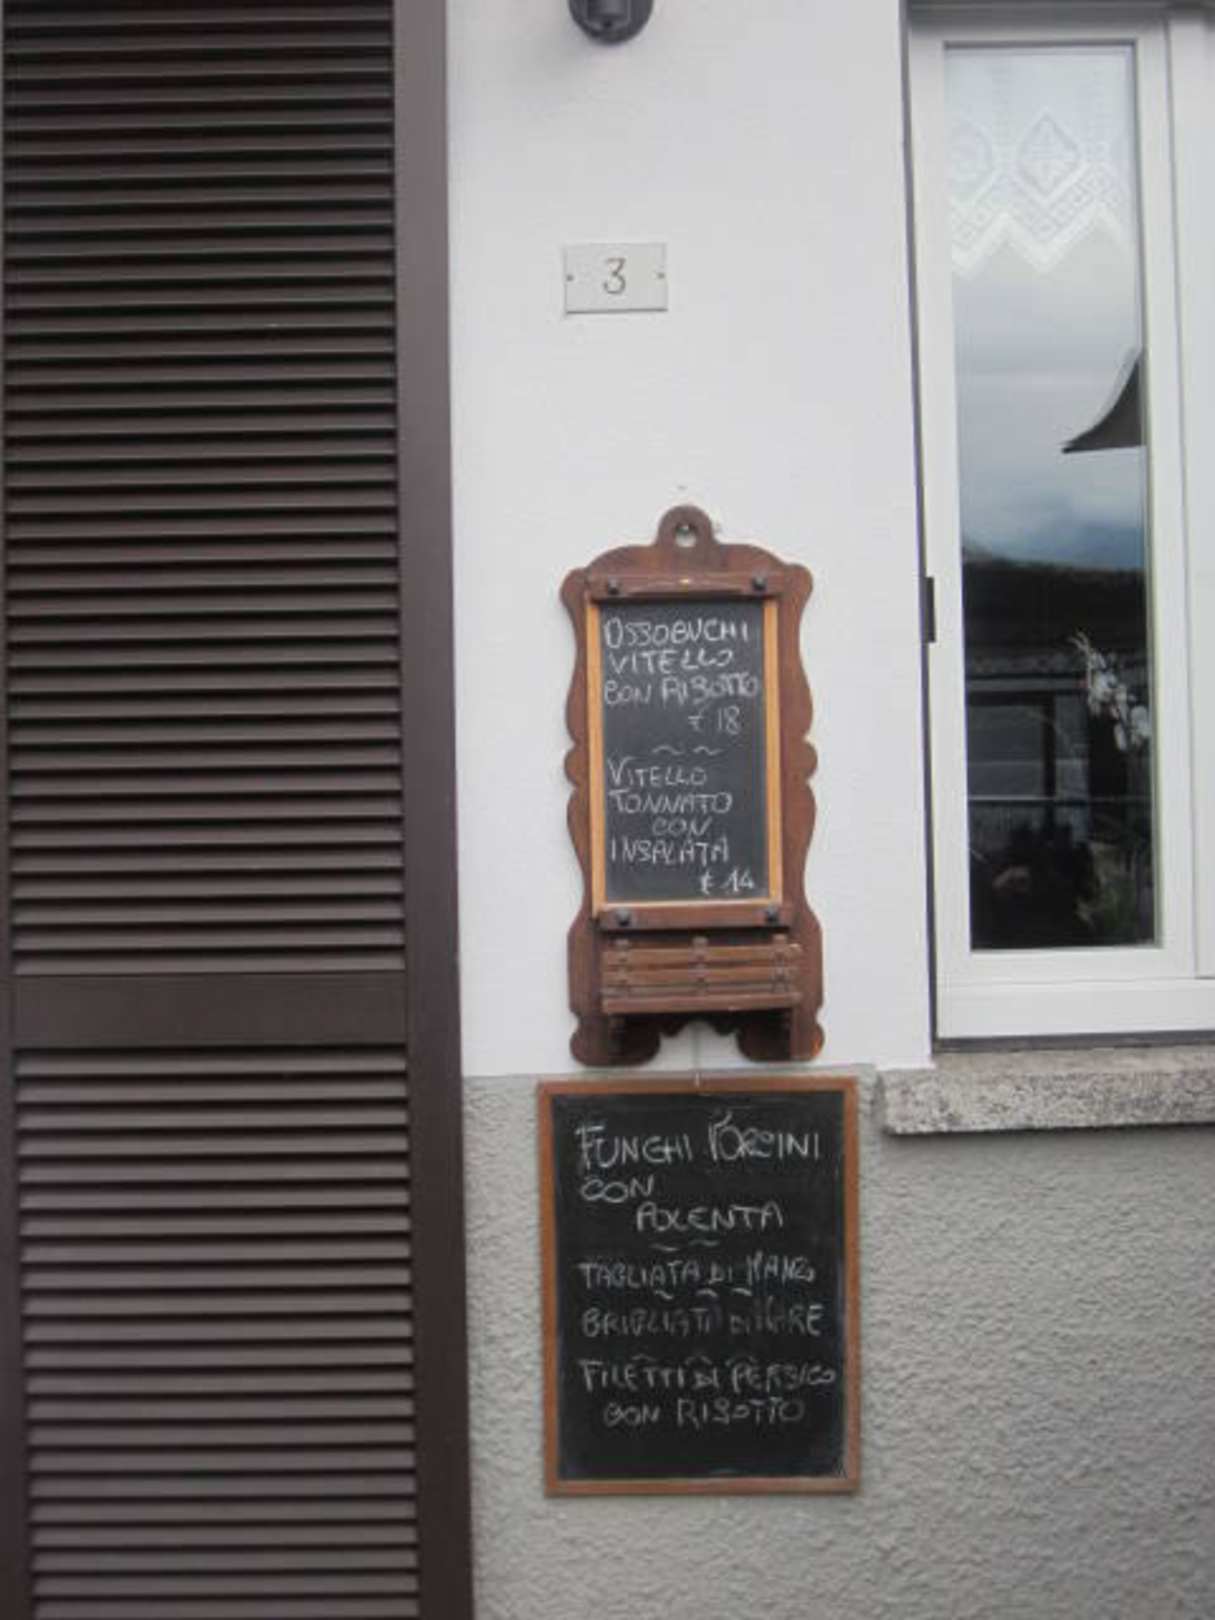 3
OSSOBUCHI
VITELLO
CON RISOTTO
€ 18
VITELLO
TONNATO
CON
INSALATA
€ 14
FUNGHI PORCINI
CON
POLENTA
TAGLIATA DI MANZO
DI MARE
FILETTI DI PERSICO
CON RISOTTO